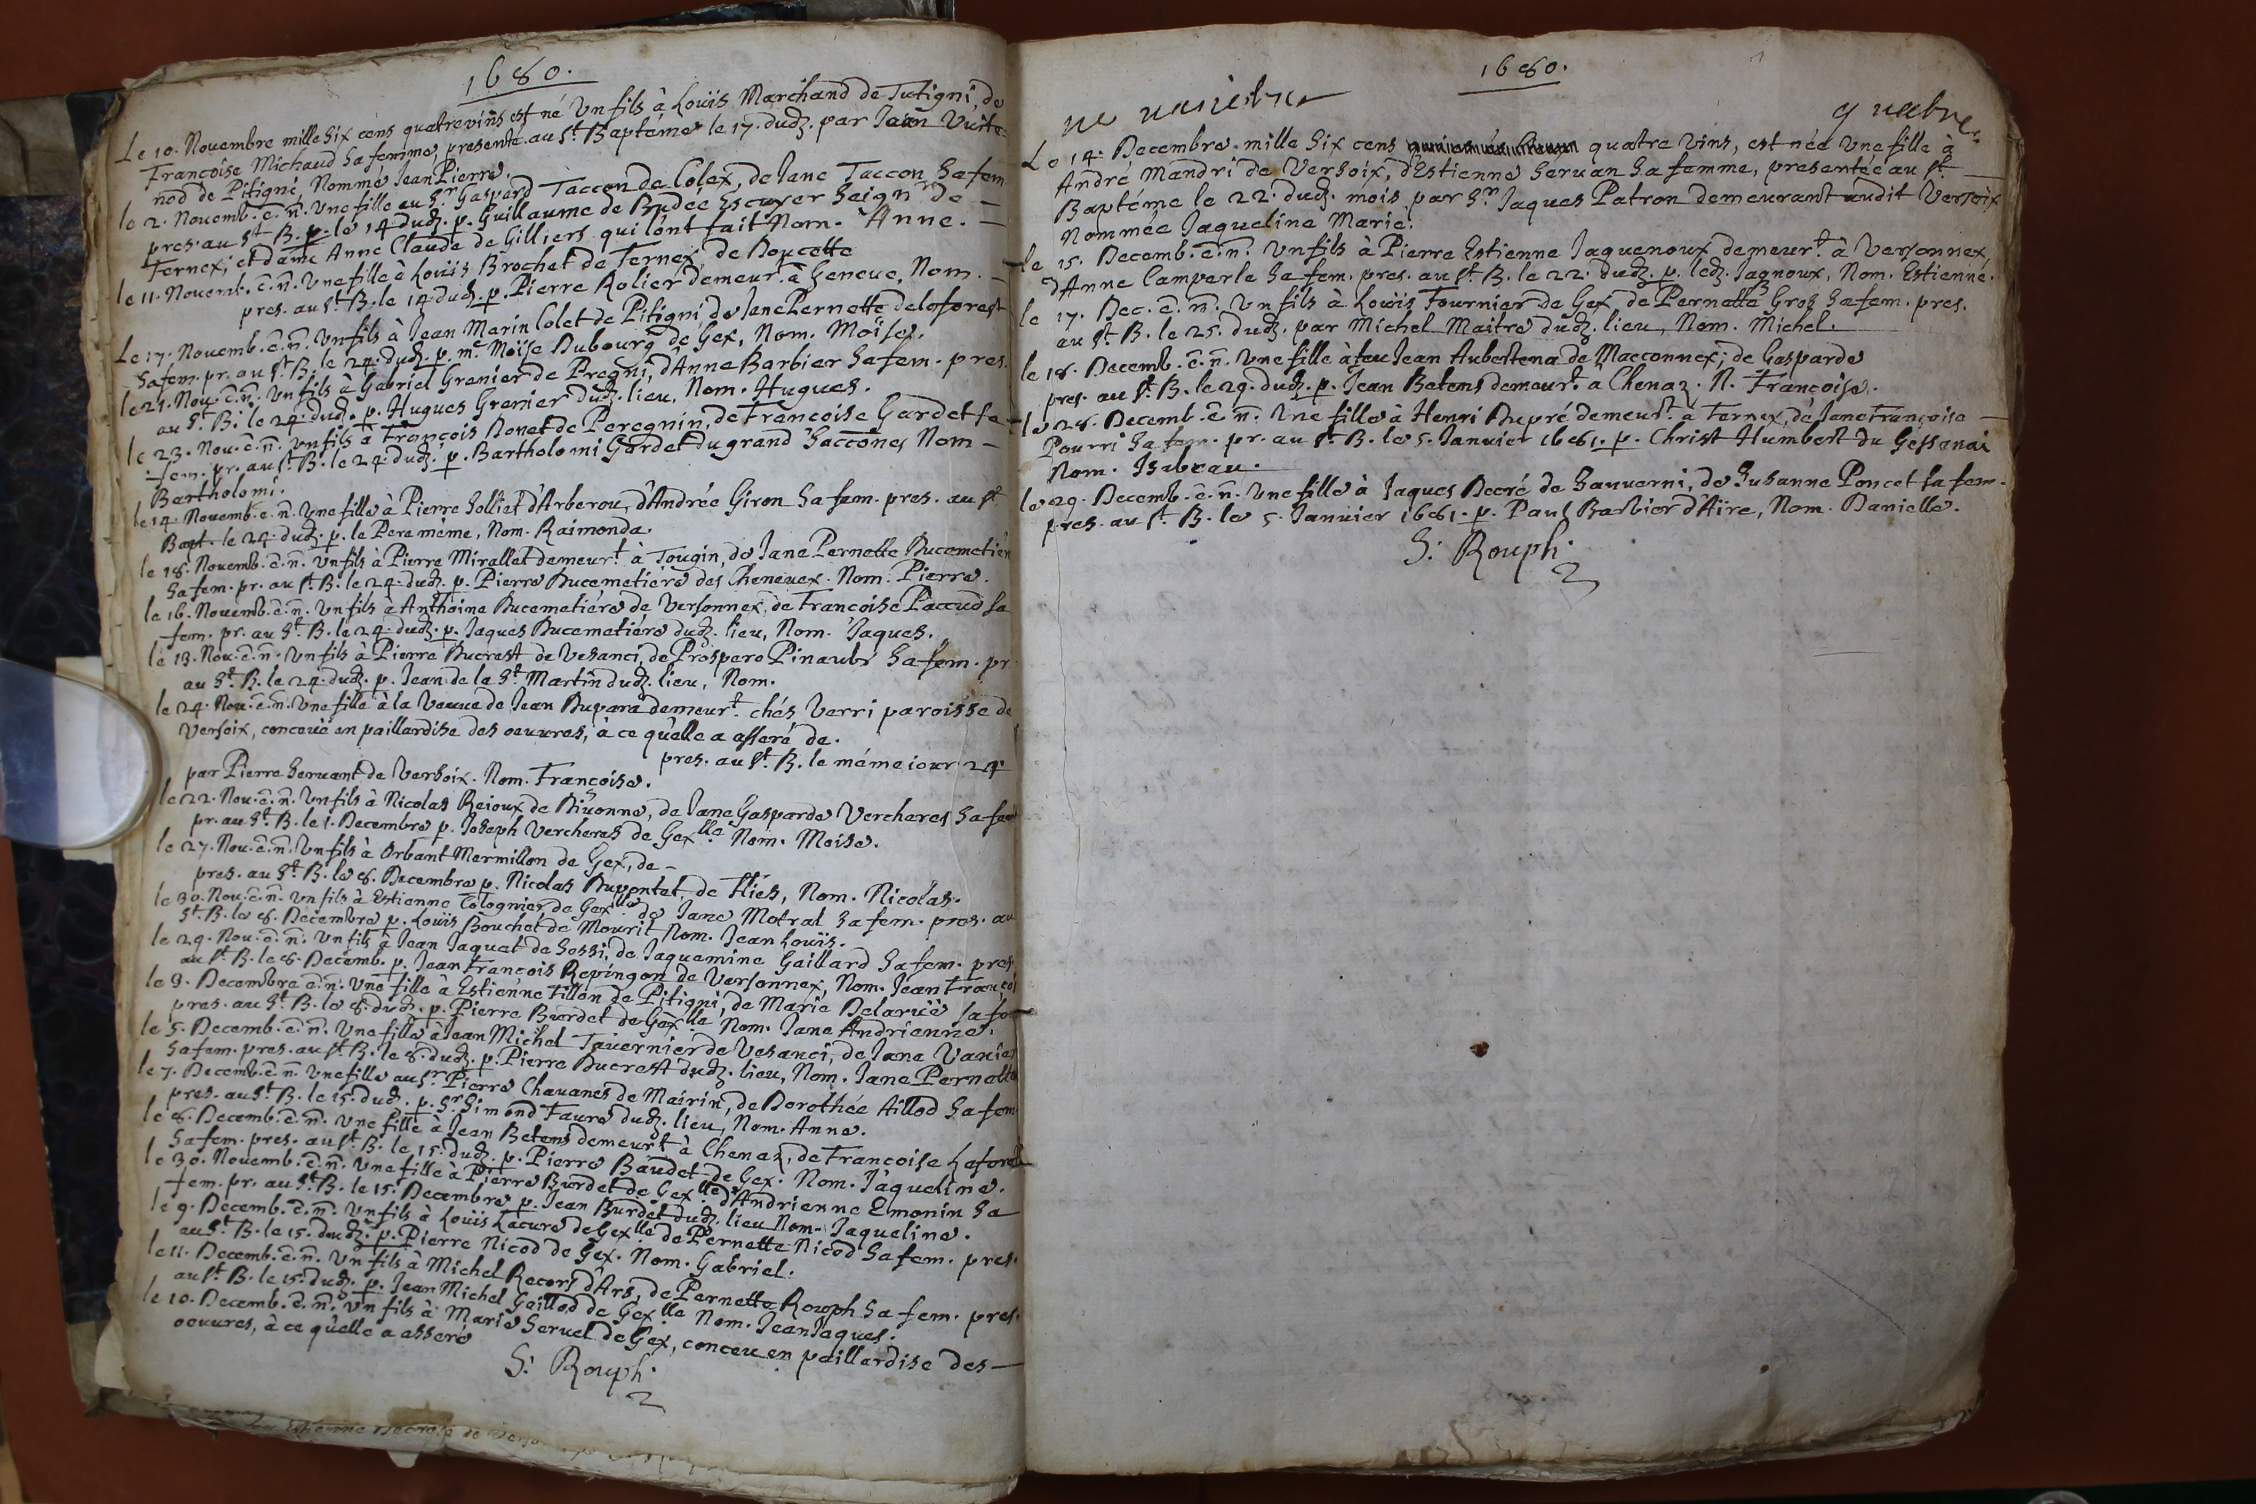 1680.
Le 10. Novembre mille six cens quatrevins est né Un fils à Louïs Marchand de Tutigni, de
Françoise Michaud sa femme, presenté au St Baptéme le 17. dudz. par Jean Vuite-
nod de Pitigni, Nommé Jean Pierre.
le 2. Novemb. e. n. Une fille au Sr. Gaspard Taccon de Colex, de Jane Taccon sa fem
pres. au St B. p. le 14 dudz. p. Guillaume de Budée Escuyer Seignr de
Fernex; et dame Anne Claude de Gilliers qui l'ont fait Nom. Anne.
le 11. Novemb. e. n. Une fille à Louïs Brochet de Fernex, de Doucette
pres. au St B. le 14 dudz. p. Pierre Rolier demeur. à Geneve, Nom.
Le 17. Novemb. e. n. Un fils à Jean Marin Colet de Pitigni de Jane Pernette Deloforest
sa fem. pr. au St B. le 24. dudz. p. me. Moïse Dubourg de Gex, Nom. Moïse.
le 21. Nov. e. n. Un fils à Gabriel Grenier de Pregni, d'Anne Barbier sa fem. pres.
au St. B. le 24. dudz. p. Hugues Grenier dudz. lieu, Nom. Hugues.
le 23. Nov. e. n. Un fils à François Donet de Peregnin, de Francoise Gardet sa
fem. pr. au St. B. le 24. dudz. p. Bartholomi Gardet du grand Sacconex Nom
Bartholomi.
le 14. Novemb. e. n. Une fille à Pierre Solliet d'Arberou, d'Andrée Giron sa fem. pres. au St
Bapt. le 24. dudz. p. le Pere méme, Nom. Raimonda.
le 18. Novemb. e. n. Un fils à Pierre Mirallet demeurt. à Tougin, de Jane Pernette Ducemetiér
sa fem. pr. au St. B. le 24. dudz. p. Pierre Ducemetiére des Cheneuex. Nom. Pierre.
le 16. Novemb. e. n. Un fils à Anthoine Ducemetiére de Versonnex, de Francoise Paccud sa
fem. pr. au St. B. le 24. dudz. p. Jaques Ducemetiére dudz. lieu, Nom. Jaques.
le 13. Nov. e. n. Un fils à Pierre Ducrest de Vesanci, de Prospere Pinaubs sa fem. pr.
au St. B. le 24. dudz. p. Jean de la St. Martin dudz. lieu, Nom.
le 24. Nov. e. n. Une fille à la Veuve de Jean Dupara demeurt. chés Verri paroisse de
Versoix, conceuë en paillardise des oeuvres, à ce qu'elle a asseré de.
pres. au St. B. le méme iour 24.
par Pierre Servant de Versoix. Nom. Françoise.
le 22. Nov. e. n. Un fils à Nicolas Rejoux de Divonne, de Jane Gasparde Vercheres sa fem
pr. au St. B. le 1. Decembre p. Joseph Vercheres de Gexlle. Nom. Moise.
le 27. Nov. e. n. Un fils à Orbant Mermillon de Gex, de
pres. au St. B. le 8. Decembre p. Nicolas Dupontet de Flies, Nom. Nicolas.
le 30. Nov. e. n. Un fils à Estienne Colognier de Gexlle. de Jane Motral sa fem. pres. au
St. B. le 8. Decembre p. Louïs Bouchet de Mourit Nom. Jean Louïs.
le 29. Nov. e. n. Un fils à Jean Jaquet de Sossi, de Jaquemine Gaillard sa fem. pres.
au St. B. le 8. Decemb. p. Jean François Repingon de Versonnex, Nom. Jean Françoi
le 3. Decembre e. n. Une fille à Estienne Tillon de Pitigni, de Marie Delaruë sa fem
pres. au St. B. le 8. dudz. p. Pierre Burdet de Gexlle Nom. Jane Andrienne.
le 5. Decemb. e. n. Une fille à Jean Michel Tavernier de Vesanci, de Jane Vanier
sa fem. pres. au St. B. le 8. dudz. p. Pierre Ducrest dudz. lieu, Nom. Jane Pernette
le 7. Decemb. e. n. Une fille au Sr. Pierre Chavanes de Mairin, de Dorothée Aillod sa fem
pres. au St. B. le 15. dudz. p. Sr Simond Faure dudz. lieu, Nom. Anne.
le 8. Decemb. e. n. Une fille à Jean Betems demeurt. à Chenaz, de Francoise Laforest
sa fem. pres. au St. B. le 15. dudz. p. Pierre Baudet de Gex. Nom. Jaqueline.
le 30. Novemb. e. n. Une fille à Pierre Burdet de Gexlle d'Andrienne Emonin sa
fem. pr. au St. B. le 15. Decembre p. Jean Burdet dudz. lieu Nom. Jaqueline.
le 9. Decemb. e. n. Un fils à Louïs Lacure de Gexlle de Pernette Nicod sa fem. pres.
au St. B. le 15. dudz. p. Pierre Nicod de Gex. Nom. Gabriel.
le 11. Decemb. e. n. Un fils à Michel Recors d'Ars, de Pernette Rouph sa fem. pres.
au St. B. le 15. dudz. p. Jean Michel Gaillod de Gexlle Nom. Jean Jaques.
le 10. Decemb. e. n. Un fils à Marie Servel de Gex, conceu en paillardise des
oeuvres, à ce qu'elle a asseré
S. Rouph.
1680.
Le 14. Decembre mille six cens quatre vins, est née Une fille à
André Mandri de Versoix, d'Estienne Servan sa femme, presentée au St.
Baptéme le 22. dudz. mois par Sr. Jaques Patron demeurant audit Versoix
Nommée Jaqueline Marie.
le 15. Decemb. e. n. Un fils à Pierre Estienne Jaquenoux demeurt. à Versonnex,
d'Anne Camperle sa fem. pres. au St. B. le 22. dudz. p. ledz. Jagnoux, Nom. Estienne.
le 17. Dec. e. n. Un fils à Louïs Fournier de Gex de Pernette Groz sa fem. pres.
au St. B. le 25. dudz. par Michel Maitre dudz. lieu, Nom. Michel.
le 18. Decemb. e. n. Une fille à feu Jean Aubertena de Macconnex, de Gasparde
pres. au St. B. le 29. dudz. p. Jean Betems demeurt. à Chenaz. N. Françoise.
le 28. Decemb. e. n. Une fille à Henri Dupré demeurt. à Fernex, de Jane Françoise
Pourri sa fem. pr. au St. B. le 5. Janvier 1681. p. Christ Humbert du Gessenai
Nom. Isabeau.
le 29. Decemb. e. n. Une fille à Jaques Decré de Sauverni, de Susanne Poncet sa fem.
pres. au St. B. le 5. Janvier 1681. p. Paul Barbier d'Aïre, Nom. Danielle.
S. Rouph.